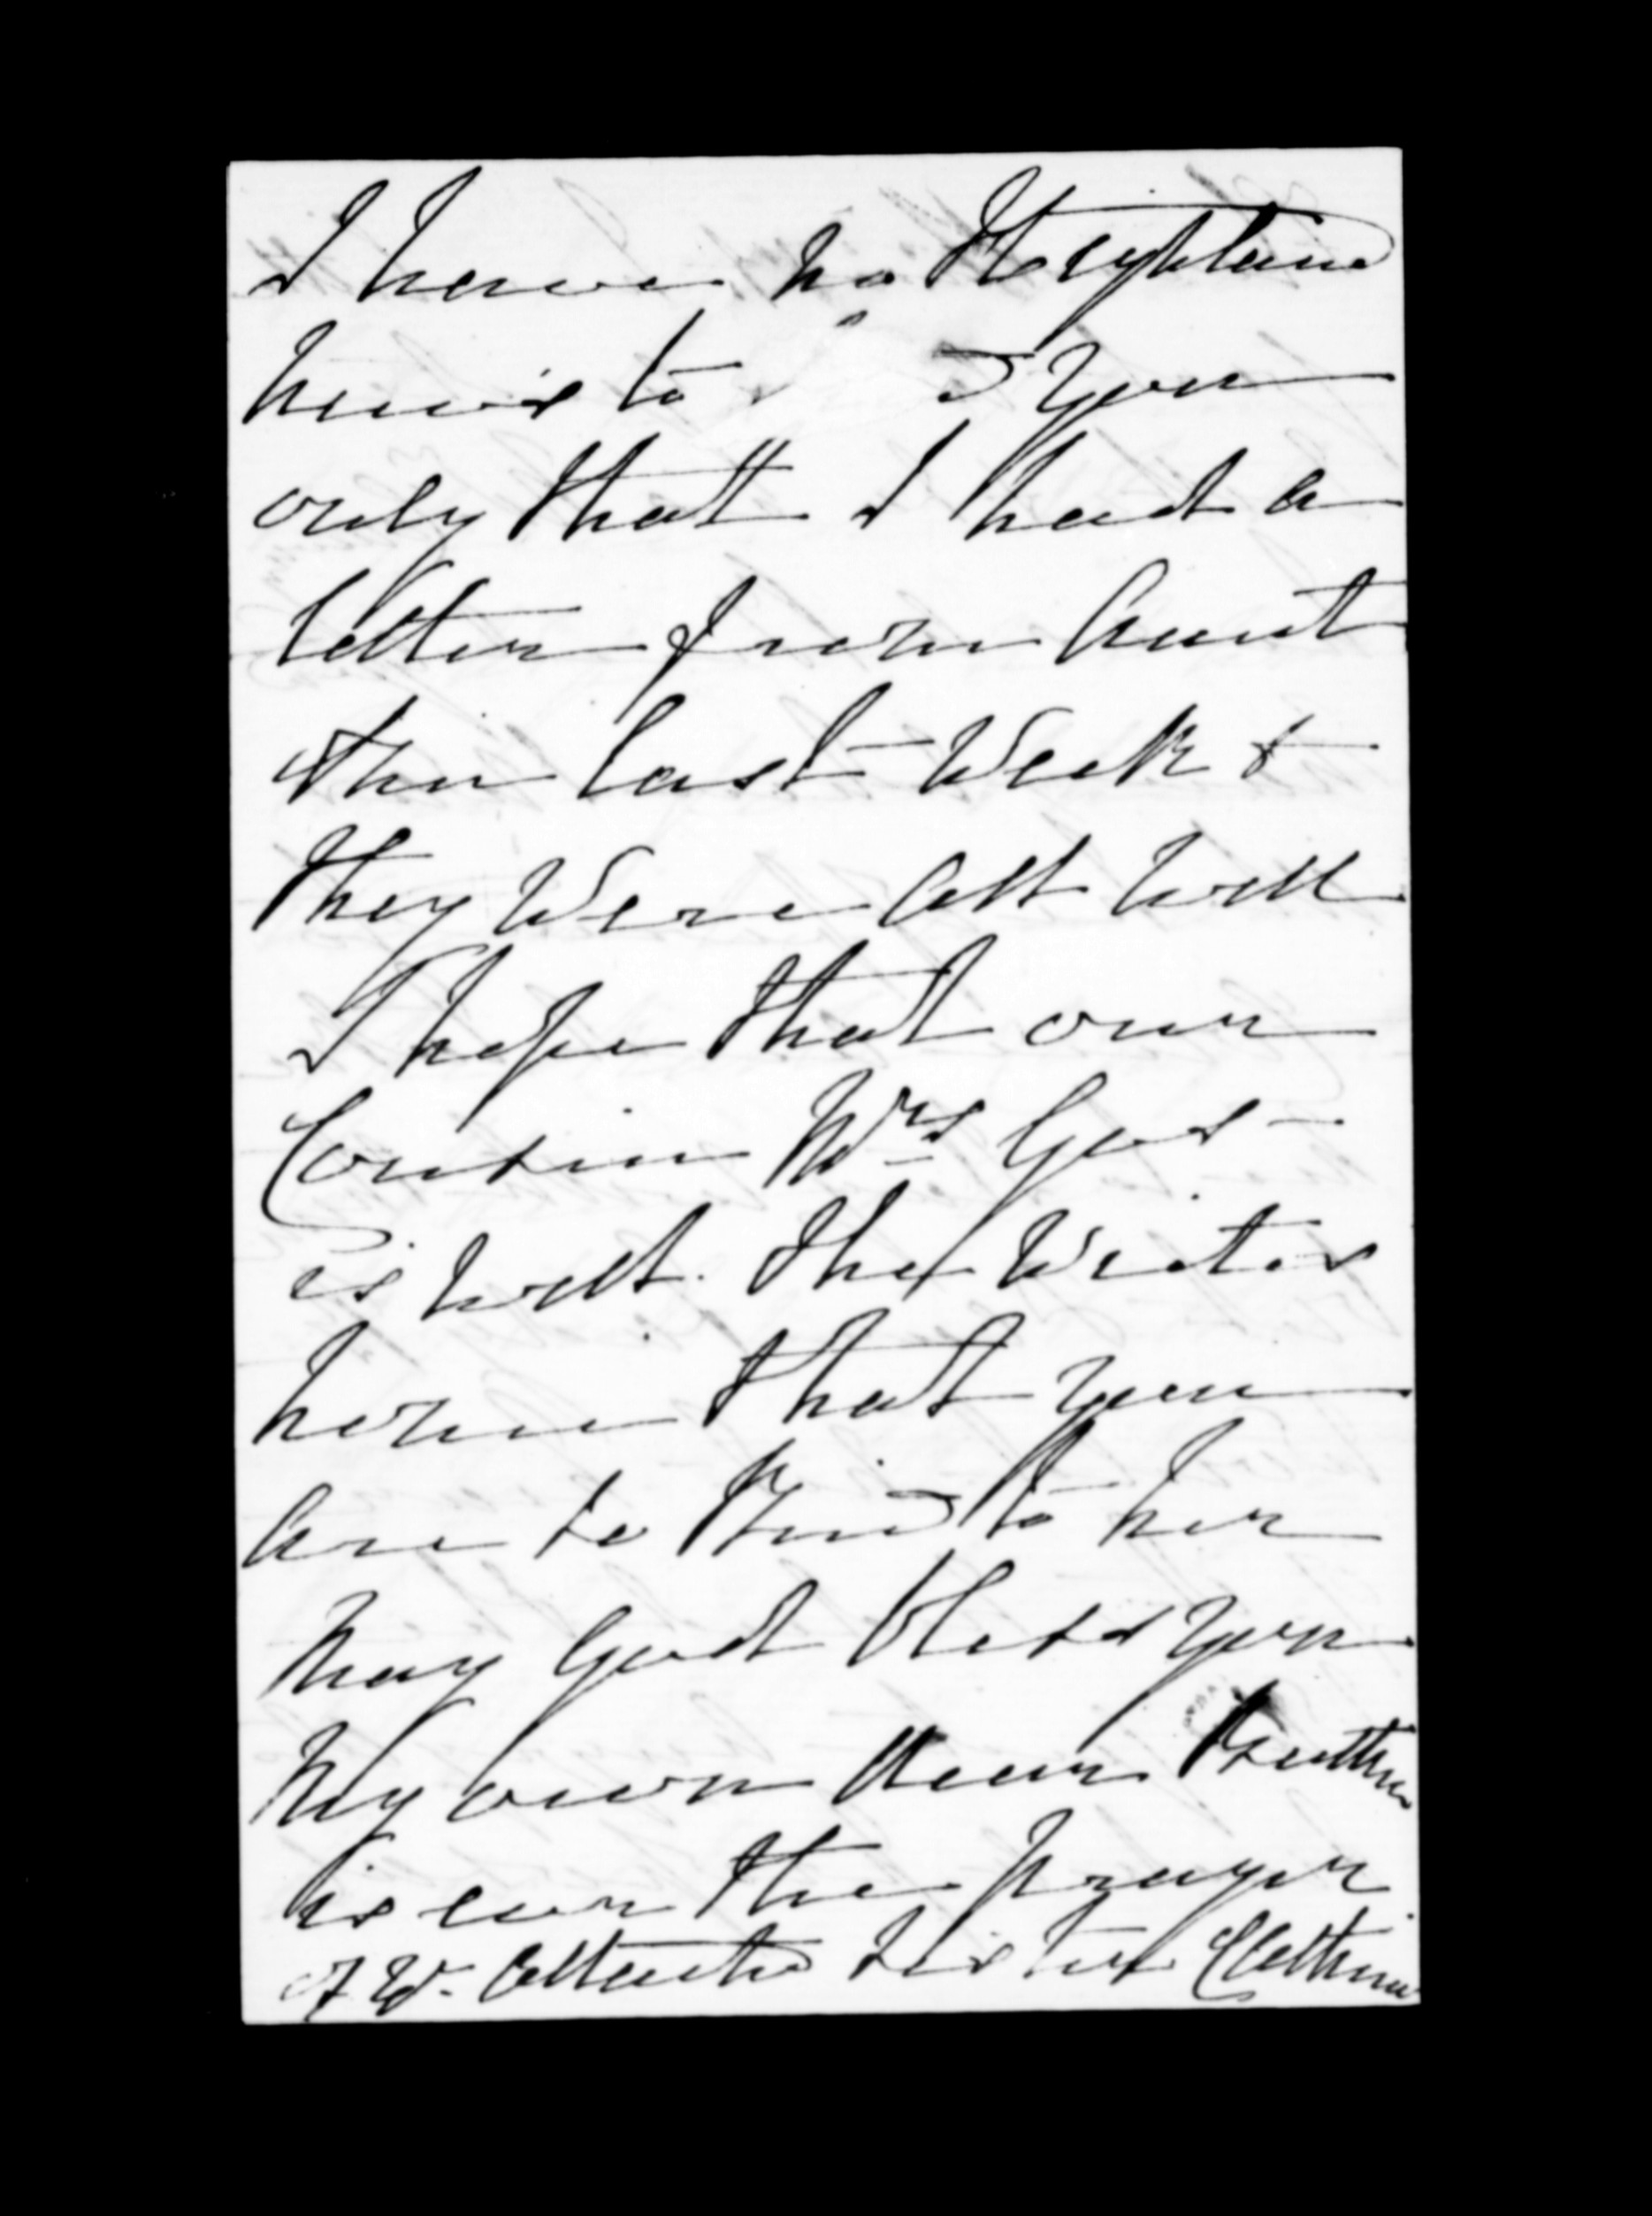 I have no
news to you
only that I had a
letter from Aunt
the last week &
they were all well
I hope that our
Cousin Mrs Gos
is well. she writes
home that you
are so kind to her
may God bless you
My own dear Brother
is ever the prayer
of yr. attacted sister